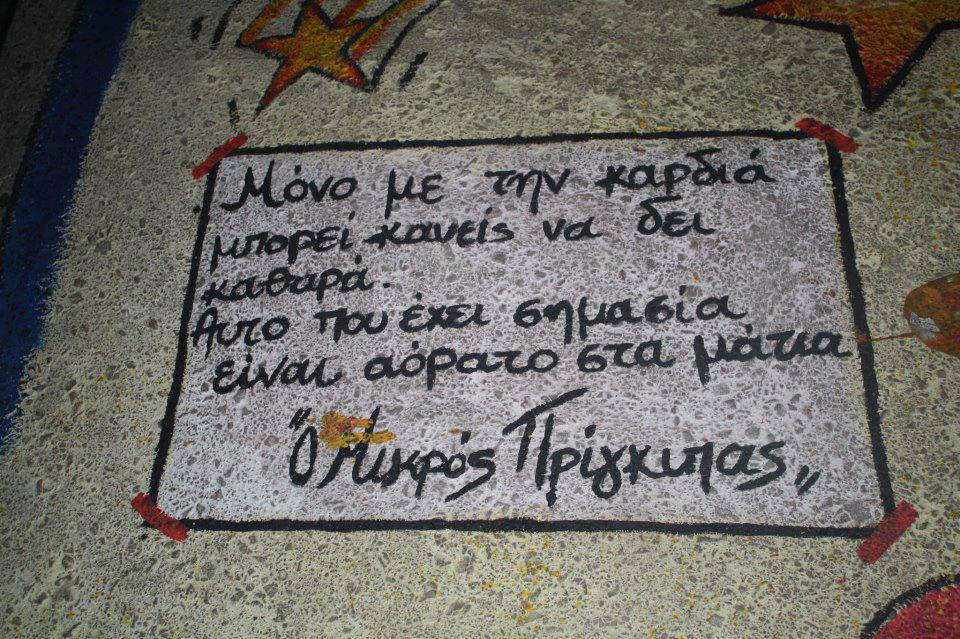 Μόνο με την καρδιά
μπορεί κανείς να δει
καθαρά.
Αυτο που έχει σημασία
είναι αόρατο στα μάτια
"Ο Μικρός Πρίγκιπας„